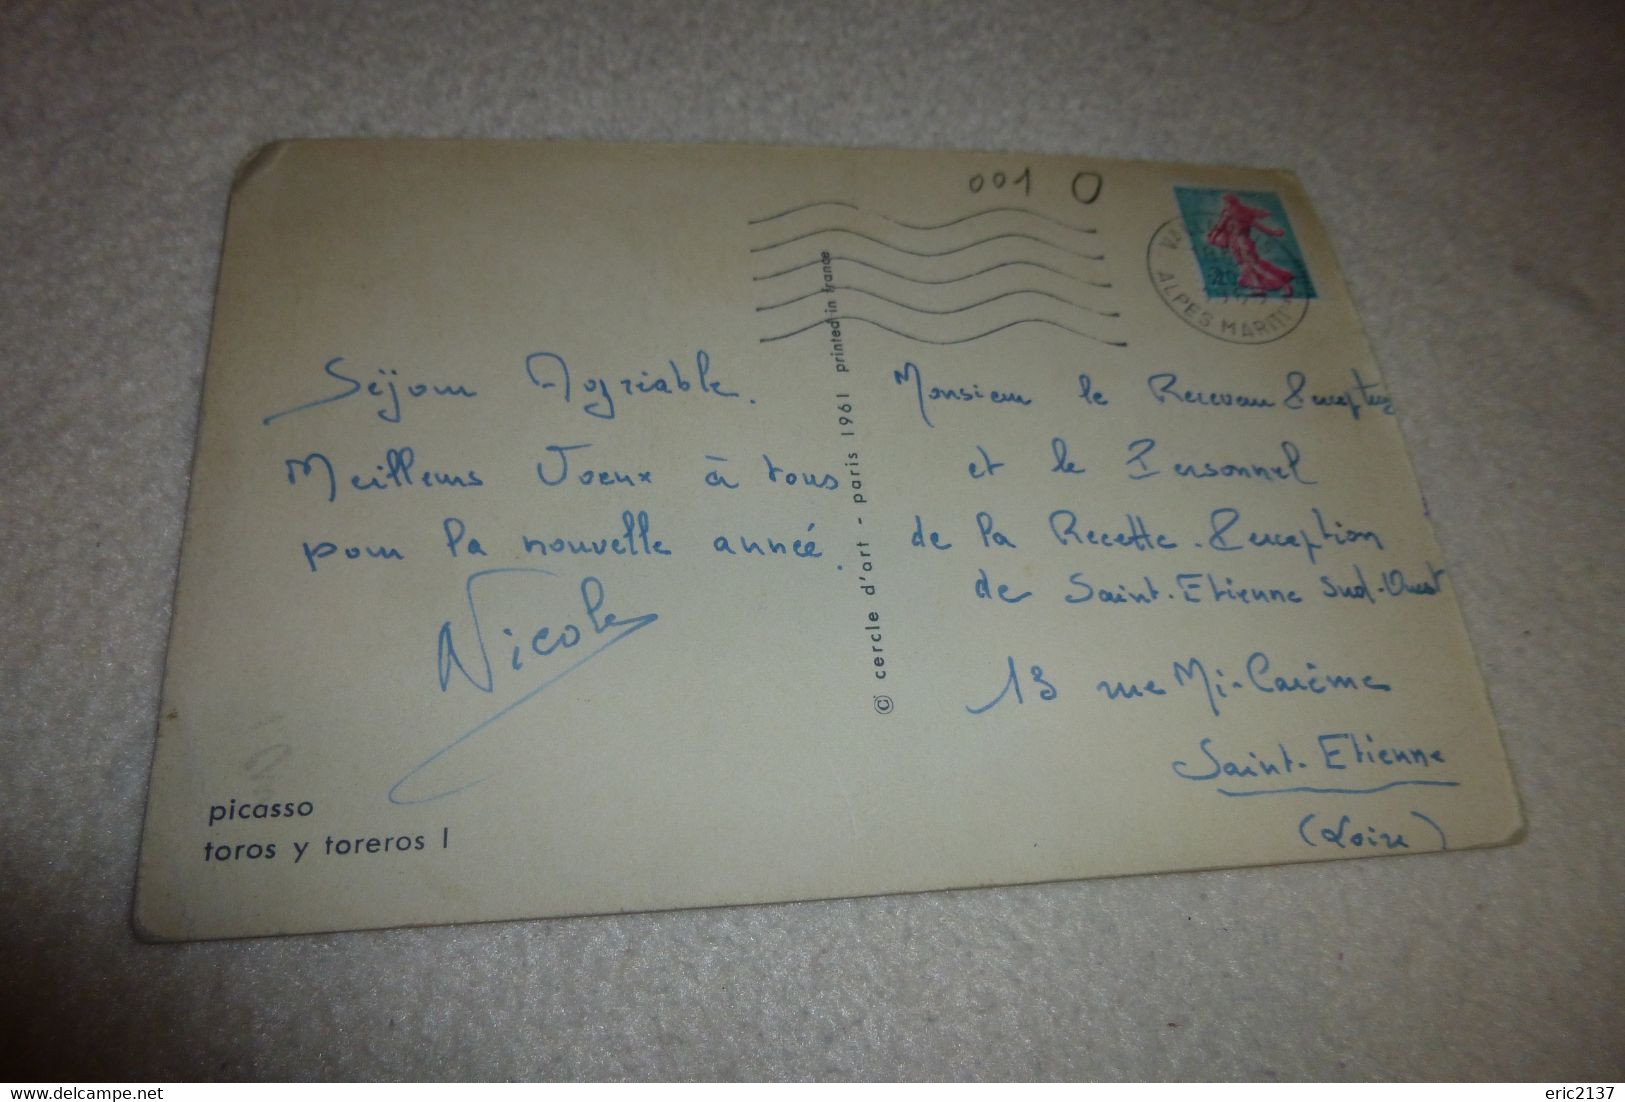 001 O
ALPES MARIT
Séjour Agréable.
Meilleurs Voeux à tous
pour la nouvelle année.
Nicole
picasso
toros y toreros I
© cercle d'art - paris 1961 printed in france
Monsieur le Receveur Percepteur
et le Personnel
de la Recette-Perception
de Saint-Etienne Sud-Ouest
13 rue Mi-Carème
Saint-Etienne
(Loire)
www.delcampe.net
eric2137